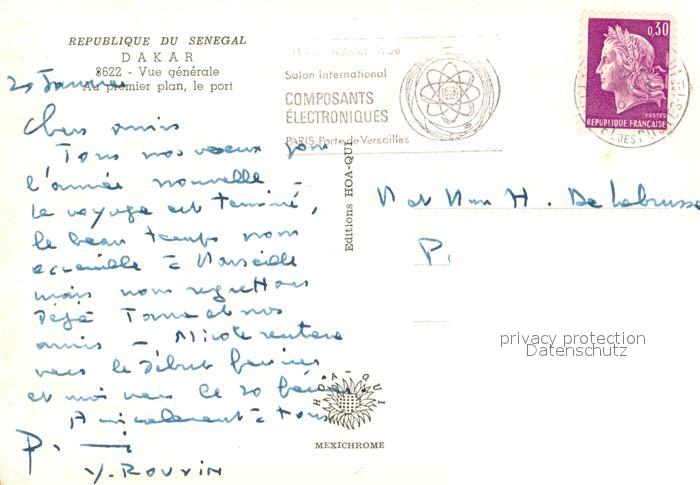 REPUBLIQUE DU SENEGAL
DAKAR
8622 - Vue générale
Au premier plan, le port
20 Janvier
Chers amis
Tous nos voeux pour
l'année nouvelle -
Le voyage est terminé,
le beau temps nous
accueille à Marseille
mais nous regrettons
Déjà et nos
amis - Nicole rentrera
vers le début février
et moi vers le 20 février
Amicalement à tous
P.
Y. ROUVIN
Salon international
COMPOSANTS
ÉLECTRONIQUES
PARIS Porte de Versailles
Editions HOA-QUI
HOA-QUI
MEXICHROME
0,30
POSTES
REPUBLIQUE FRANÇAISE
M et Mme H. De Labrusse
P.
privacy protection
Datenschutz